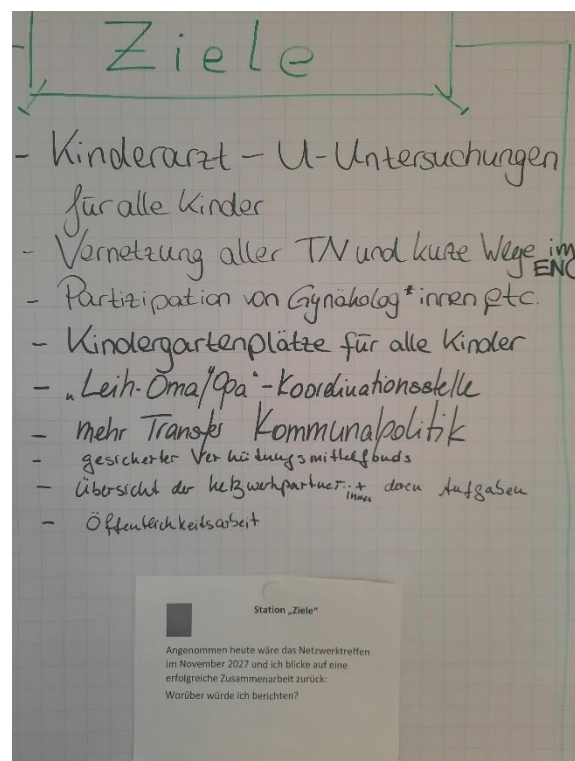 Ziele
- Kinderarzt – U-Untersuchungen
für alle Kinder
- Vernetzung aller TN und kurze Wege im
ENC
- Partizipation von Gynäkolog*innen etc.
- Kindergartenplätze für alle Kinder
- "Leih-Oma/Opa"-Koordinationsstelle
- mehr Transfer Kommunalpolitik
- gesicherter Verhütungsmittelfonds
- Übersicht der Netzwerkpartner*innen + deren Aufgaben
- Öffentlichkeitsarbeit
Station „Ziele"
Angenommen heute wäre das Netzwerktreffen
im November 2027 und ich blicke auf eine
erfolgreiche Zusammenarbeit zurück:
Worüber würde ich berichten?